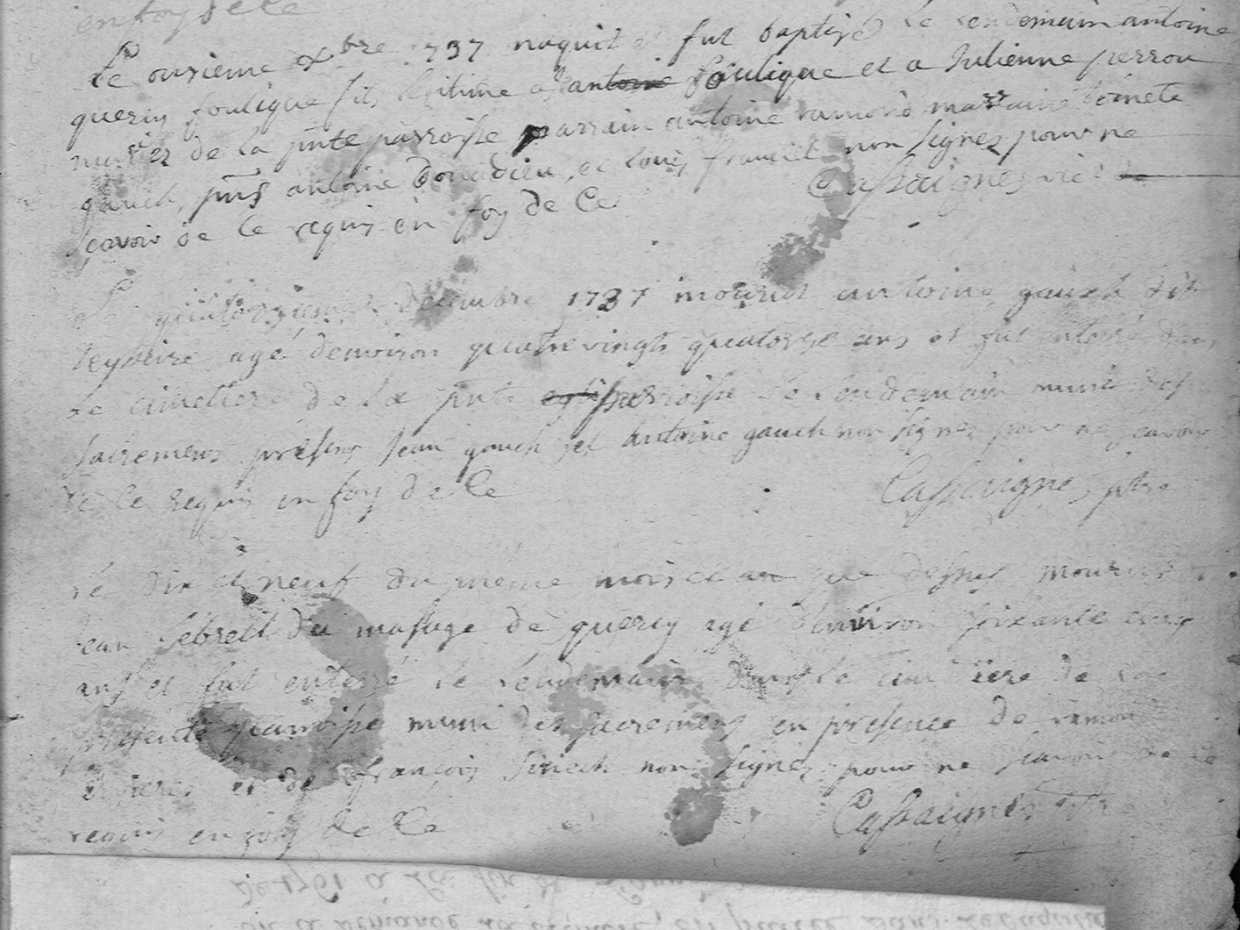 en foy de ce
Le onsieme xbre 1737 naquit et fut baptisé le lendemain antoine
quercy foulique fils legitime a antoine foulique et a Julienne perrou
de la pnte parroisse parrain antoine ramond marraine toinete
gauch, pns antoine Donadieu, et louis non signes pour ne
scavoir de ce requis en foy de ce Cassaignes vic
Le quatorzieme decembre 1737 mourut antoine gauch dit
agé denviron quatrevingts quatorse ans et fut enterré dans
Le cimetiere de la pnte parroisse le lendemain muni des
sacremens présens Jean gauch et antoine gauch non signes pour ne scavoir
de ce requis en foy de ce Cassaignes, ptre
le dix et neuf du meme mois et an que dessus mourut
Jean Sebrell du masage de quercy agé denviron soixante cinq
ans et fut enterré le lendemain dans le cimetiere de la
presente parroisse muni des sacremens en presence de ramon
et de françois non signes pour ne scavoir de ce
requis en foy de ce Cassaignes ptre
de 1761 a la fin de
on a demandé en partie sans